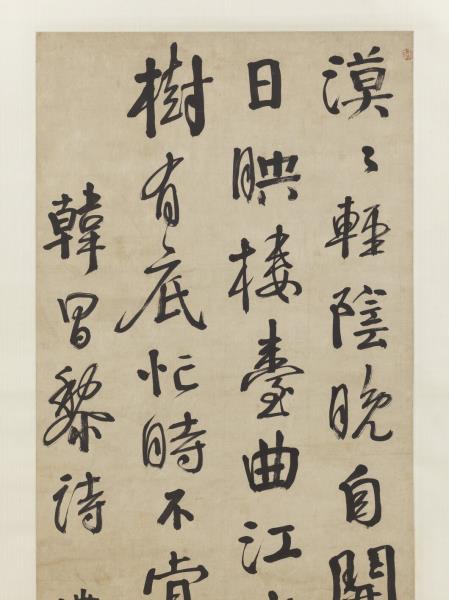 漠〻輕陰晚自開
日映樓臺曲江
樹有底忙時不肯
韓昌黎詩